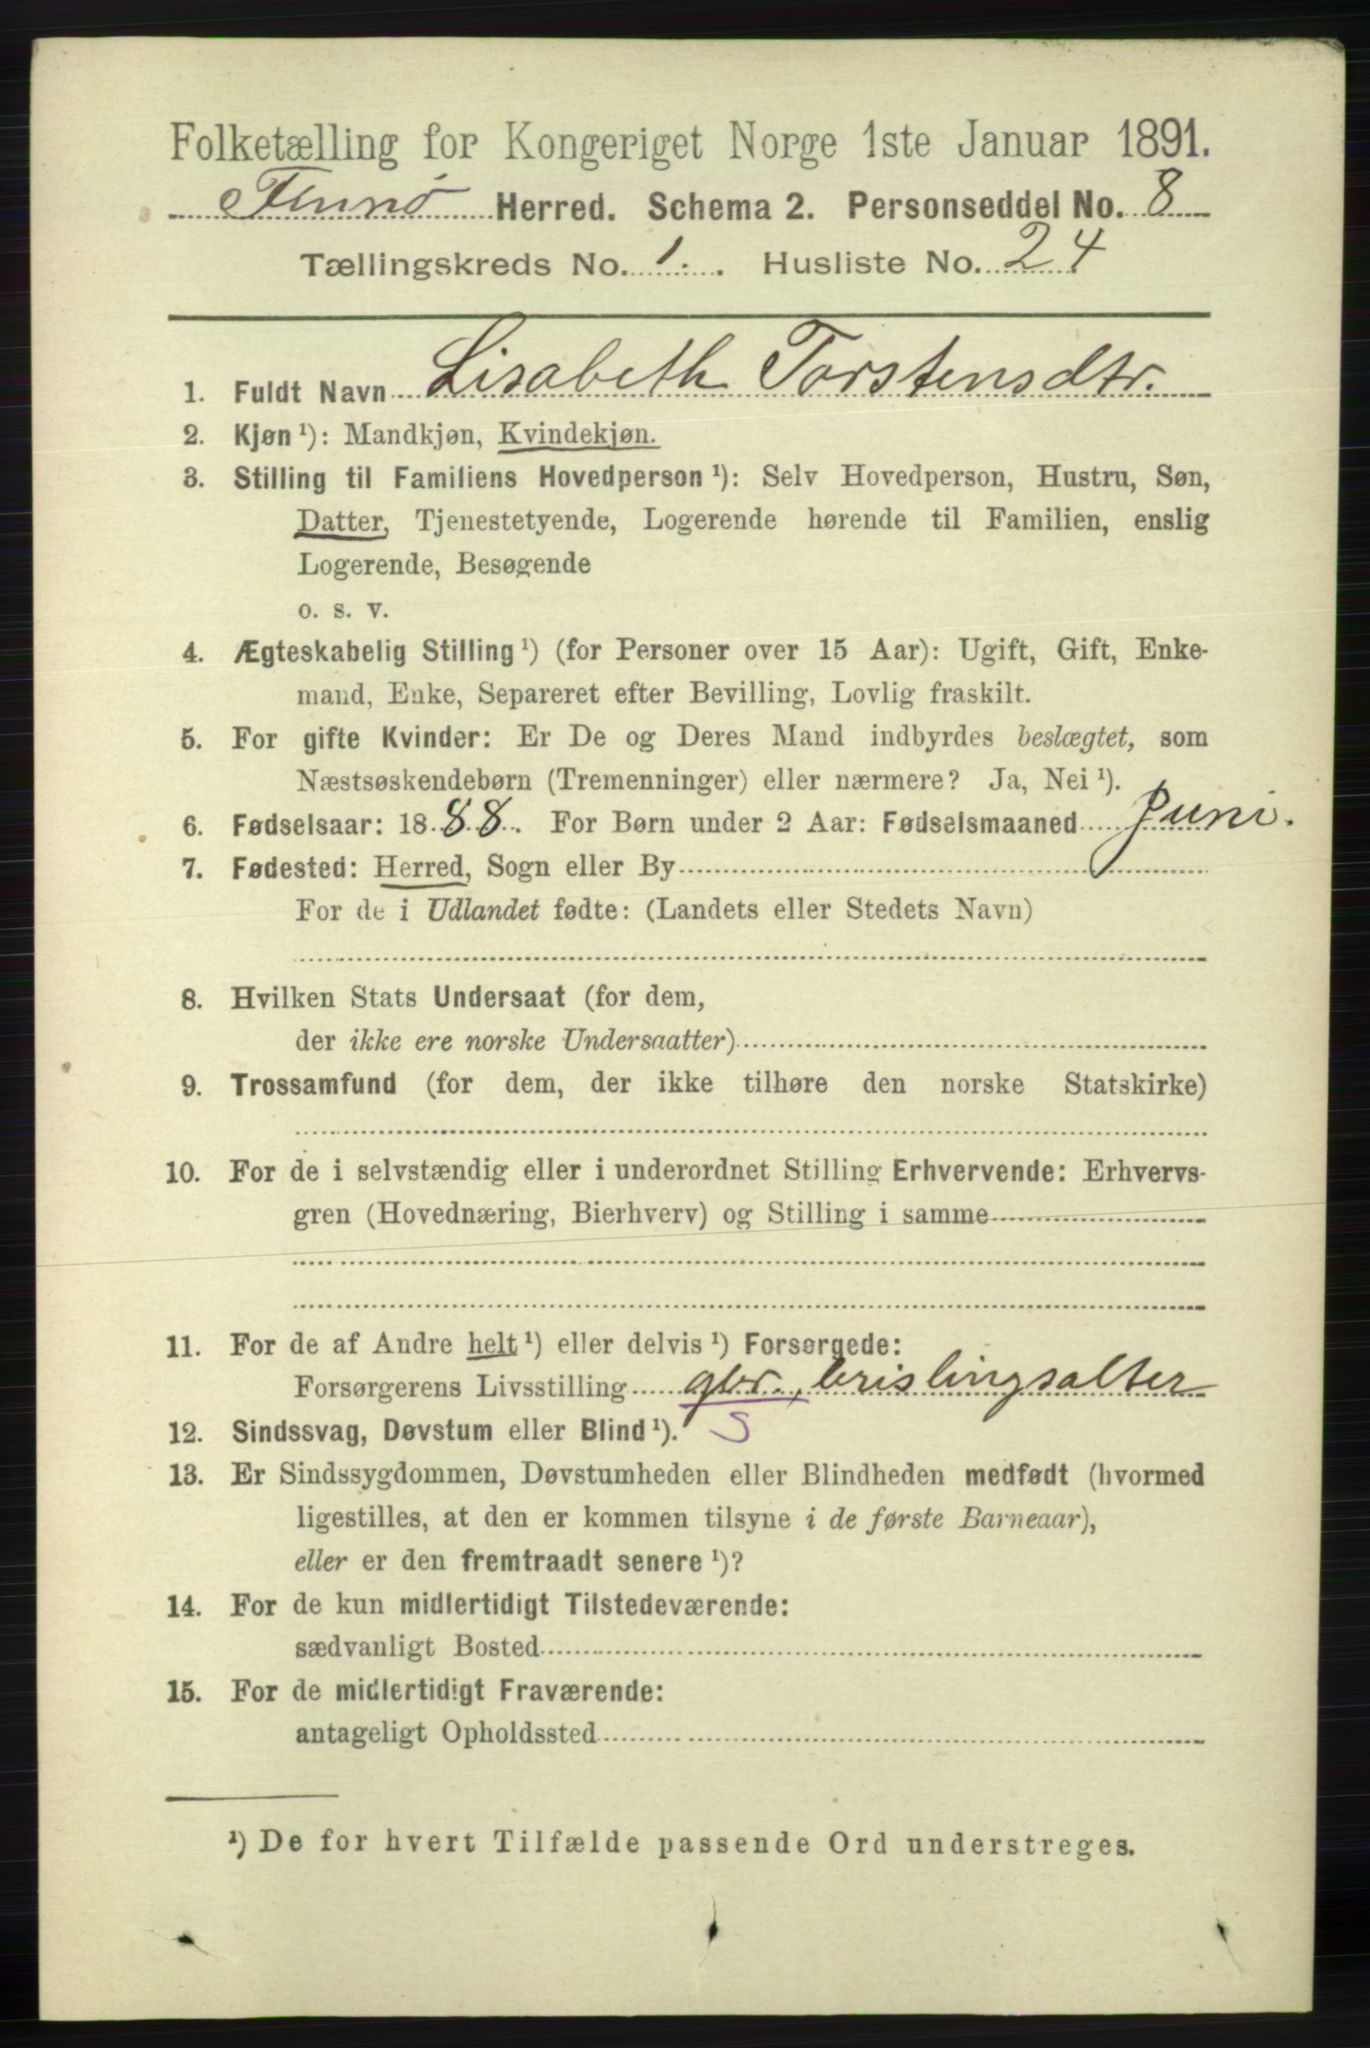 Folketælling for Kongeriget Norge 1ste Januar 1891.
Finnö Herred. Schema 2. Personseddel No. 8
Tællingskreds No. 1. Husliste No. 24
1. Fuldt Navn Lisabeth Torstensdtr.
2. Kjøn ¹): Mandkjøn, Kvindekjøn.
3. Stilling til Familiens Hovedperson ¹): Selv Hovedperson, Hustru, Søn,
Datter, Tjenestetyende, Logerende hørende til Familien, enslig
Logerende, Besøgende
o. s. v.
4. Ægteskabelig Stilling ¹) (for Personer over 15 Aar): Ugift, Gift, Enke-
mand, Enke, Separeret efter Bevilling, Lovlig fraskilt.
5. For gifte Kvinder: Er De og Deres Mand indbyrdes beslægtet, som
Næstsøskendebørn (Tremenninger) eller nærmere? Ja, Nei ¹).
6. Fødselsaar: 1888. For Børn under 2 Aar: Fødselsmaaned Juni.
7. Fødested: Herred, Sogn eller By
For de i Udlandet fødte: (Landets eller Stedets Navn)
8. Hvilken Stats Undersaat (for dem,
der ikke ere norske Undersaatter)
9. Trossamfund (for dem, der ikke tilhøre den norske Statskirke)
10. For de i selvstændig eller i underordnet Stilling Erhvervende: Erhvervs-
gren (Hovednæring, Bierhverv) og Stilling i samme
11. For de af Andre helt ¹) eller delvis ¹) Forsørgede:
Forsørgerens Livsstilling gbr., brislingsalter
12. Sindssvag, Døvstum eller Blind ¹). S
13. Er Sindssygdommen, Døvstumheden eller Blindheden medfødt (hvormed
ligestilles, at den er kommen tilsyne i de første Barneaar),
eller er den fremtraadt senere ¹)?
14. For de kun midlertidigt Tilstedeværende:
sædvanligt Bosted
15. For de midlertidigt Fraværende:
antageligt Opholdssted
¹) De for hvert Tilfælde passende Ord understreges.